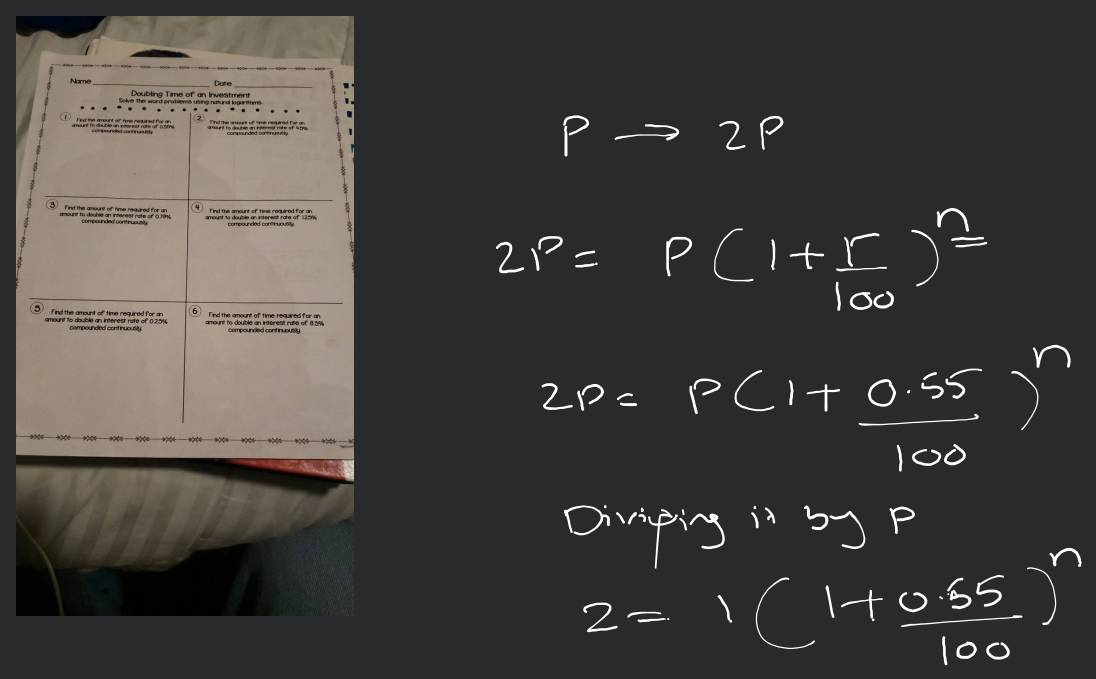 Name Date
Doubling Time of an Investment
Solve the word problems using natural logarithms.
1 Find the amount of time required for an
amount to double an interest rate of 0.55%
compounded continuously.
2 Find the amount of time required for an
amount to double an interest rate of 4.5%
compounded continuously.
3 Find the amount of time required for an
amount to double an interest rate of 0.78%
compounded continuously.
4 Find the amount of time required for an
amount to double an interest rate of
compounded continuously.
5 Find the amount of time required for an
amount to double an interest rate of 0.25%
compounded continuously.
6 Find the amount of time required for an
amount to double an interest rate of 8.5%
compounded continuously.
P → 2P
2P = P(1+r/100)^n
2P = P(1+0.55/100)^n
by P
2 = 1(1+0.55/100)^n